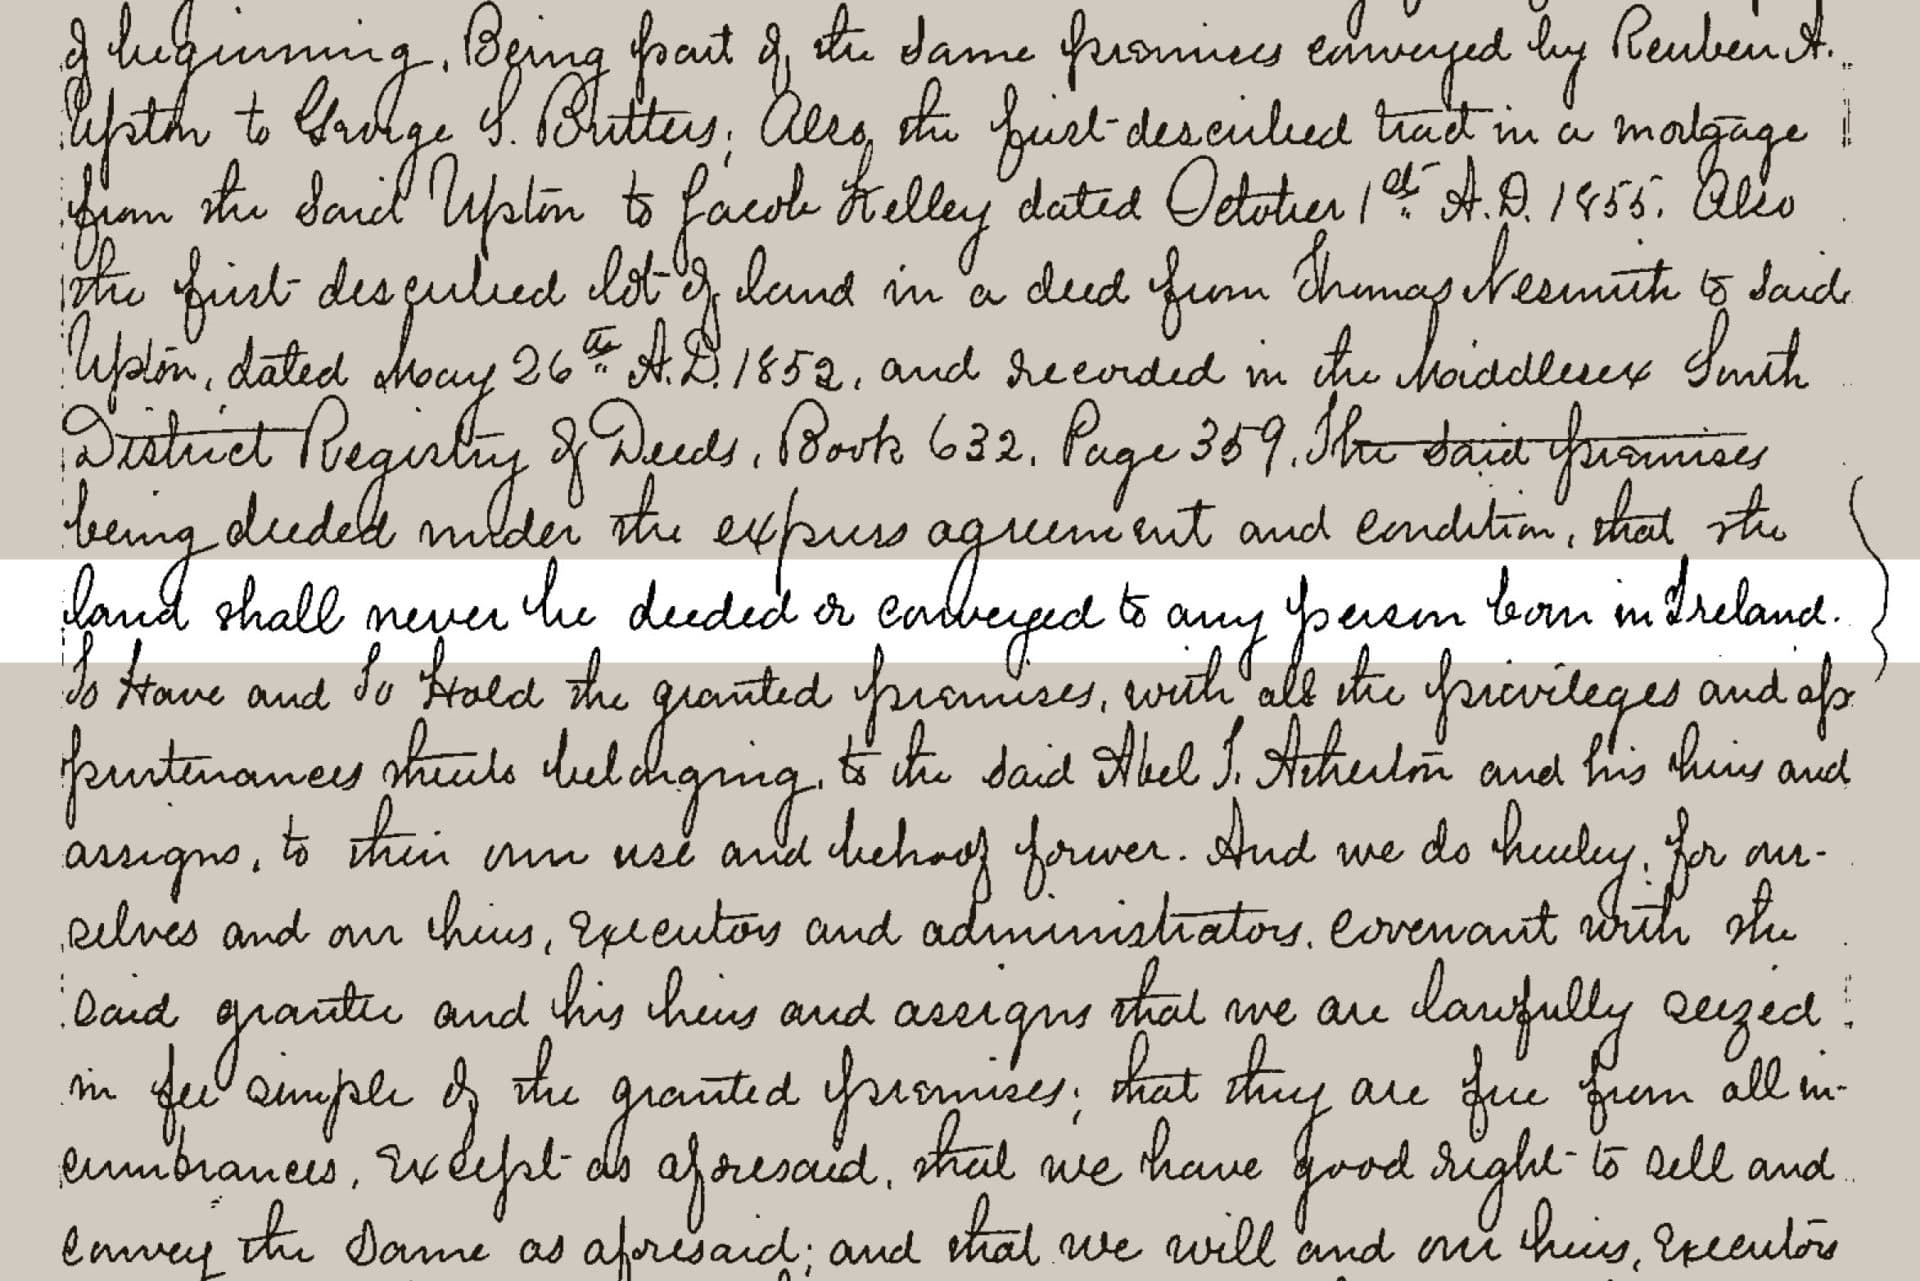 of beginning. Being part of the same premises conveyed by Reuben A.
Upton to George S. Butters; Also the first described tract in a mortgage
from the said Upton to Jacob Kelley dated October 1st A.D. 1855. Also
the first described lot of land in a deed from Thomas Nesmith to said
Upton, dated May 26th A.D. 1852, and recorded in the Middlesex South
District Registry of Deeds, Book 632, Page 359. The said premises
being deeded under the express agreement and condition, that the
land shall never be deeded or conveyed to any person born in Ireland.
To Have and To Hold the granted premises, with all the privileges and ap
purtenances thereto belonging, to the said Abel T. Atherton and his heirs and
assigns, to their own use and behoof forever. And we do hereby, for our-
selves and our heirs, executors and administrators, covenant with the
said grantee and his heirs and assigns that we are lawfully seized
in fee simple of the granted premises; that they are free from all in-
cumbrances, Except as aforesaid, that we have good right to sell and
convey the same as aforesaid; and that we will and our heirs, Executors